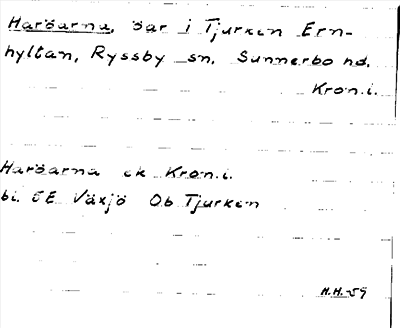 Haröarna, öar i Tjurken Ern-
hyltan, Ryssby sn. Sunnerbo hd.
Kron.l.
Haröarna ek Kron.l.
bl. 5E Växjö Ob Tjurken
H.H.-59